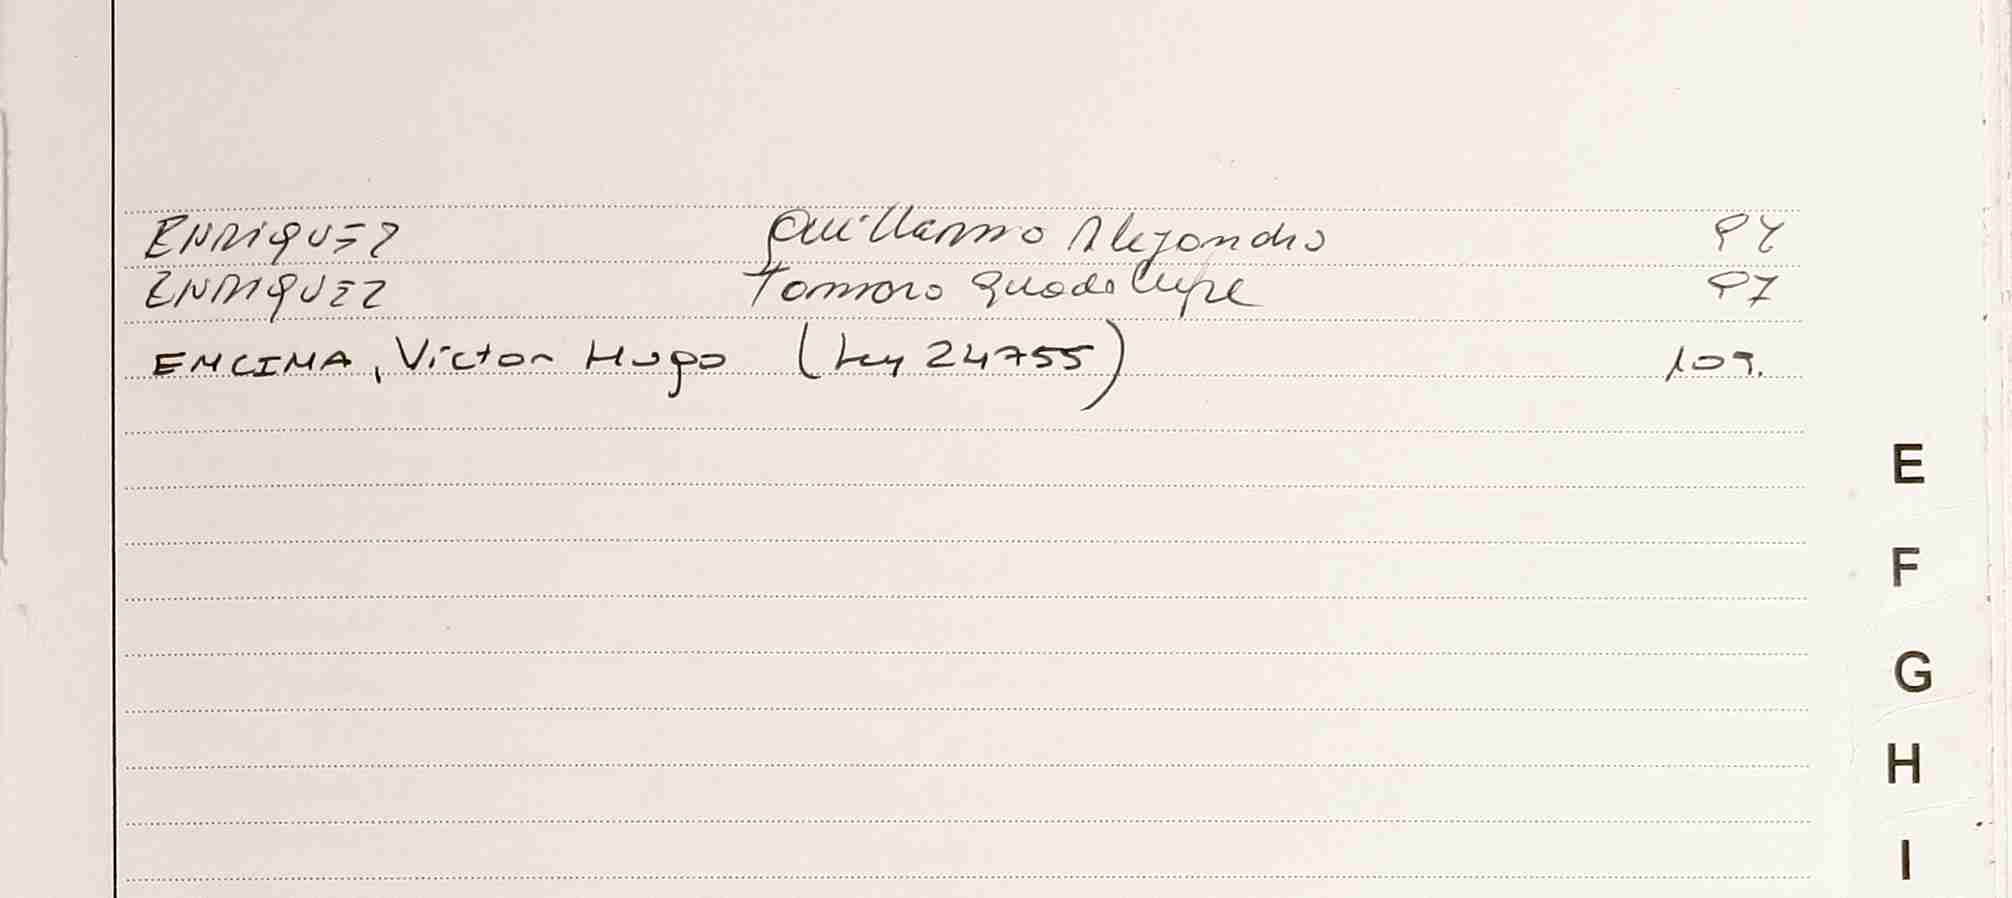 ENRIQUEZ Guillermo Alejandro 94
ENRIQUEZ Tamara Guadalupe 97
ENCINA, Victor Hugo (Ley 24755) 109.
E
F
G
H
I